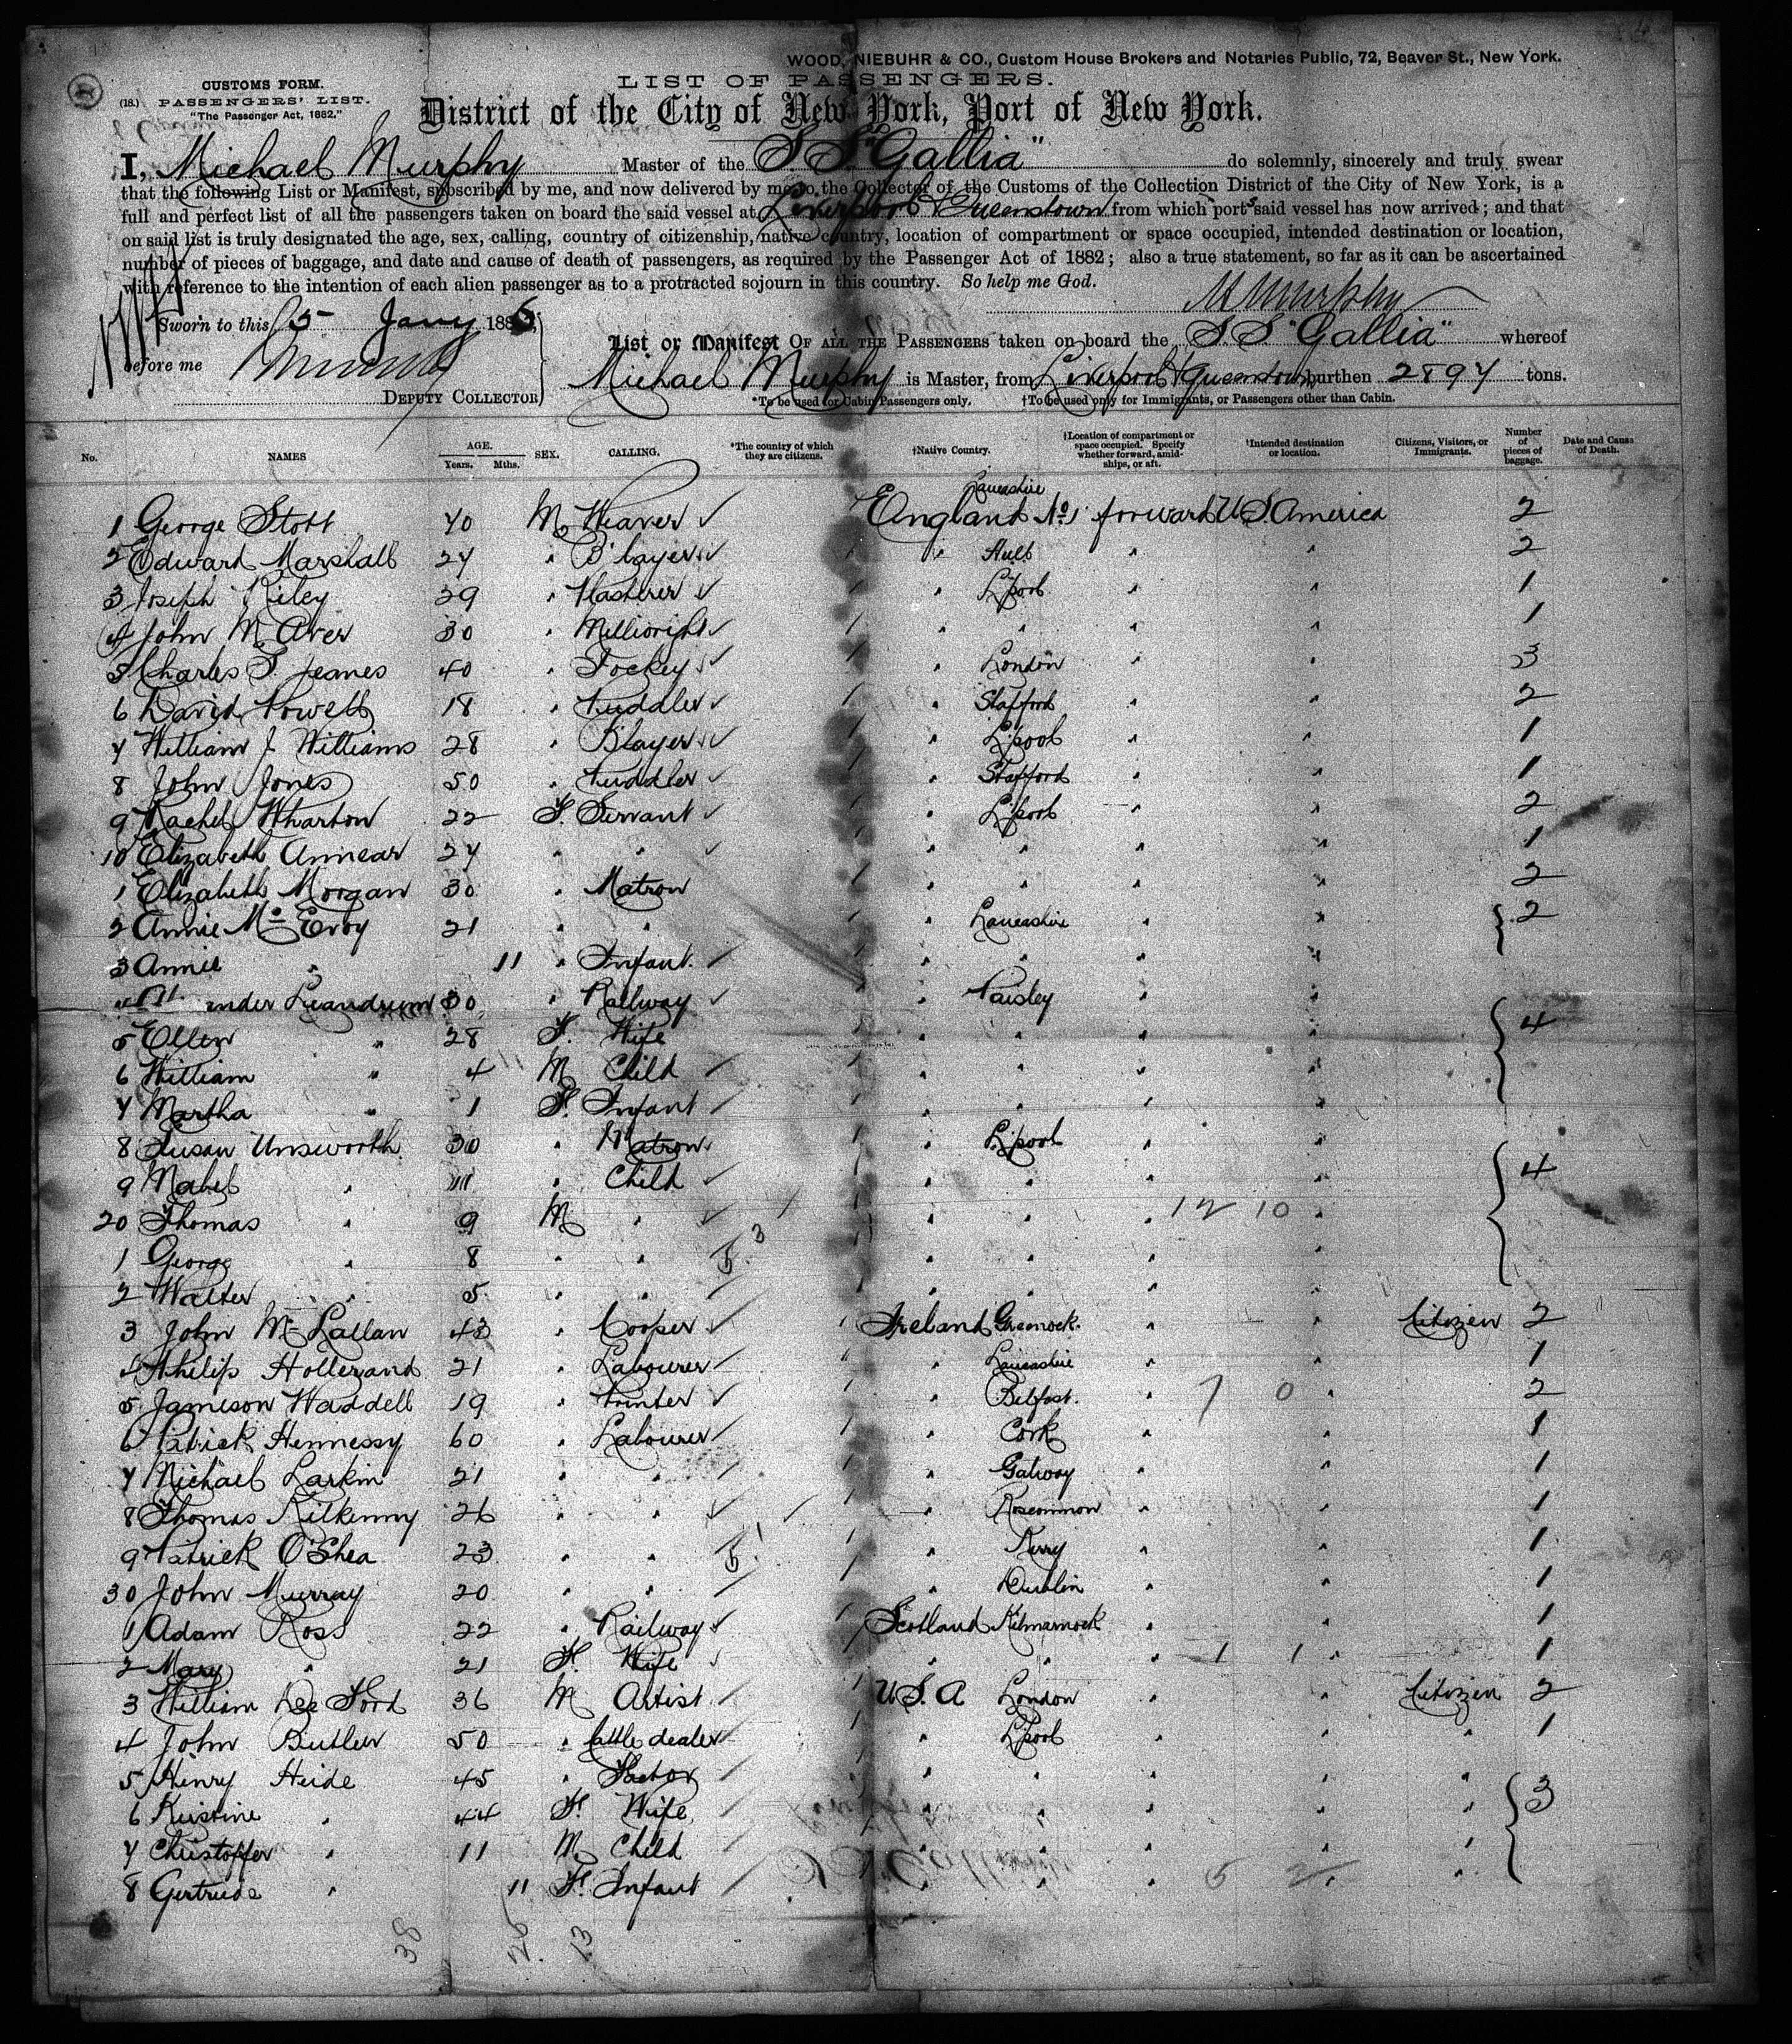 WOOD, NIEBUHR & CO., Custom House Brokers and Notaries Public, 72, Beaver St., New York.
CUSTOMS FORM.
LIST OF PASSENGERS.
(18.) PASSENGERS' LIST.
"The Passenger Act, 1882."
District of the City of New York, Port of New York.
I, Michael Murphy Master of the S. S. "Gallia" do solemnly, sincerely and truly swear
that the following List or Manifest, subscribed by me, and now delivered by me to the Collector of the Customs of the Collection District of the City of New York, is a
full and perfect list of all the passengers taken on board the said vessel at Liverpool & Queenstown from which ports said vessel has now arrived; and that
on said list is truly designated the age, sex, calling, country of citizenship, native country, location of compartment or space occupied, intended destination or location,
number of pieces of baggage, and date and cause of death of passengers, as required by the Passenger Act of 1882; also a true statement, so far as it can be ascertained
with reference to the intention of each alien passenger as to a protracted sojourn in this country. So help me God.
M Murphy
Sworn to this 5 Jany 1886,
List or Manifest OF ALL THE PASSENGERS taken on board the S. S "Gallia" whereof
before me
Michael Murphy is Master, from Liverpool & Queenstown burthen 2897 tons.
DEPUTY COLLECTOR
*To be used for Cabin Passengers only. †To be used only for Immigrants, or Passengers other than Cabin.
No. NAMES AGE. Years. Mths. SEX. CALLING. *The country of which they are citizens. †Native Country. †Location of compartment or space occupied. Specify whether forward, amidships, or aft. †Intended destination or location. Citizens, Visitors, or Immigrants. Number of pieces of baggage. Date and Cause of Death.
1 George Stott 40 M Weaver England Lancashire No 1 forward U S America 2
2 Edward Marshall 24 " B'layer " Hull " " 2
3 Joseph Riley 29 " Plasterer " L'pool " " 1
4 John McAver 30 " Millwright " " " " 1
5 Charles S. Jeanes 40 " Jockey " London " " 3
6 David Powell 18 " Puddler " Stafford " " 2
7 William J Williams 28 " B'layer " L'pool " " 1
8 John Jones 50 " Puddler " Stafford " " 1
9 Rachel Wharton 22 F. Servant " L'pool " " 2
10 Elizabeth Annear 24 " " " " " " 1
1 Elizabeth Morgan 30 " Matron " " " " 2
2 Annie Mc Evoy 21 " " " Lancashire " " 2
3 Annie " 11 " Infant " " " "
4 ander Leandrum 30 " Railway " Paisley " "
5 Ellen " 28 F. Wife " " " " 4
6 William " 4 M Child " " " "
7 Martha " 1 F. Infant " " " "
8 Susan Unsworth 30 " Matron " L'pool " "
9 Mabel " 11 " Child " " " " 4
20 Thomas " 9 M " " " " 12 10 "
1 George " 8 " " " " " "
2 Walter " 5 " " " " " "
3 John Mc Lallan 43 " Cooper Ireland Greenock " " Citizen 2
4 Philip Hollerand 21 " Labourer " Lancashire " " 1
5 Jameson Waddell 19 " Printer " Belfast " 7 0 " 2
6 Patrick Hennessy 60 " Labourer " Cork " " 1
7 Michael Larkin 21 " " " Galway " " 1
8 Thomas Kilkenny 26 " " " Roscommon " " 1
9 Patrick O'Shea 23 " " " Kerry " " 1
30 John Murray 20 " " " Dublin " " 1
1 Adam Ross 22 " Railway Scotland Kilmarnock " " 1
2 Mary " 21 F. Wife " " " 1 1 1
3 William Lee Ford 36 M Artist U S. A London " " Citizen 2
4 John Butler 50 " Cattle dealer " L'pool " " " 1
5 Henry Heide 45 " Factor " " " " "
6 Kristine " 44 F. Wife " " " " " 3
7 Christoffer " 11 M Child " " " " "
8 Gertrude " 11 F. Infant " " " 5 2 " "
38 26 13